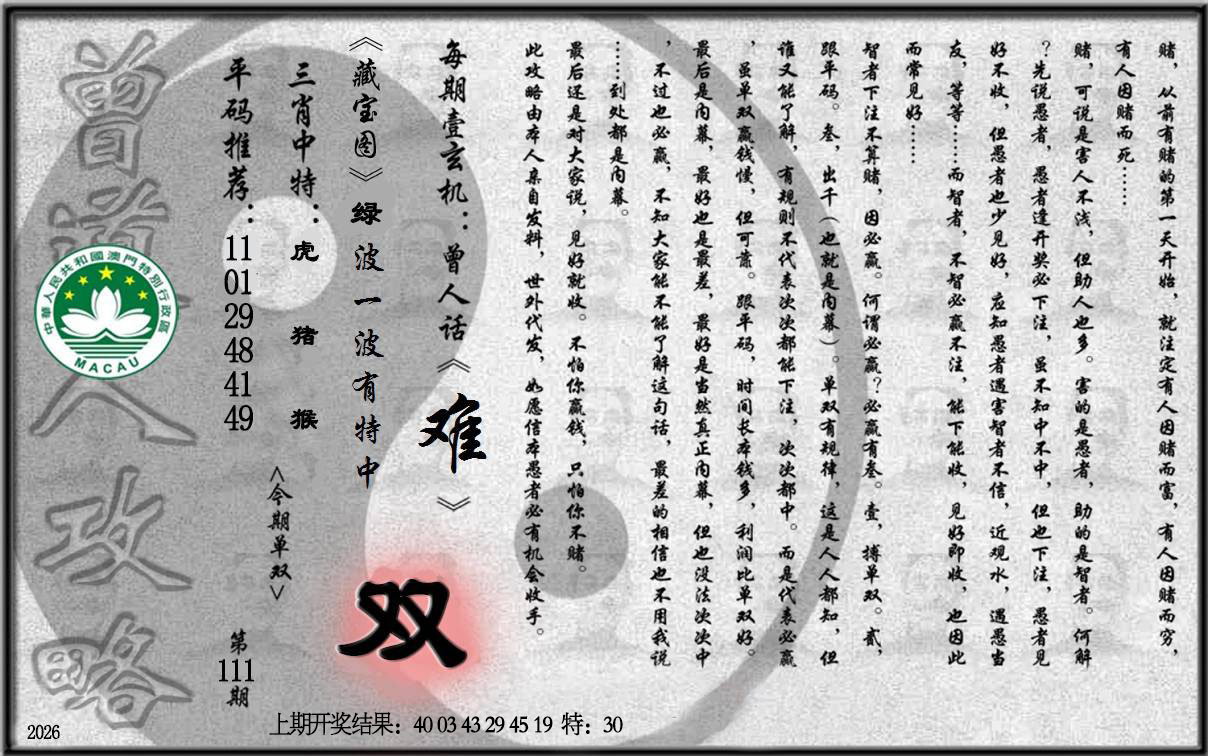 赌，从前有赌的第一天开始，就注定有人因赌而富，有人因赌而穷，
有人因赌而死……
赌，可说是害人不浅，但助人也多。害的是愚者，助的是智者。何解
？先说愚者，愚者逢开奖必下注，虽不知中不中，但也下注，愚者见
好不收，但愚者也少见好，应知愚者遇害智者不信，近观水，遇愚当
友，等等……而智者，不智必赢不注，能下能收，见好即收，也因此
而常见好……
智者下注不算赌，因必赢。何谓必赢？必赢有叁。壹，搏单双。贰，
跟平码。叁，出千（也就是内幕）。单双有规律，这是人人都知，但
谁又能了解，有规则不代表次次都能下注，次次都中。而是代表必赢
，虽单双赢钱慢，但可靠。跟平码，时间长本钱多，利润比单双好。
最后是内幕，最好也是最差，最好是当然真正内幕，但也没法次次中
，不过也必赢，不知大家能不能了解这句话，最差的相信也不用我说
……到处都是内幕。
最后还是对大家说，见好就收。不怕你赢钱，只怕你不赌。
此攻略由本人亲自发料，世外代发，如愿信本愚者必有机会收手。
每期壹玄机：曾人话《难》
《藏宝图》绿波一波有特中
双
三肖中特：虎 猪 猴
<今期单双>
平码推荐：11 01 29 48 41 49
第111期
曾道人攻略
中華人民共和國澳門特別行政區
MACAU
上期开奖结果：40 03 43 29 45 19 特：30
2026